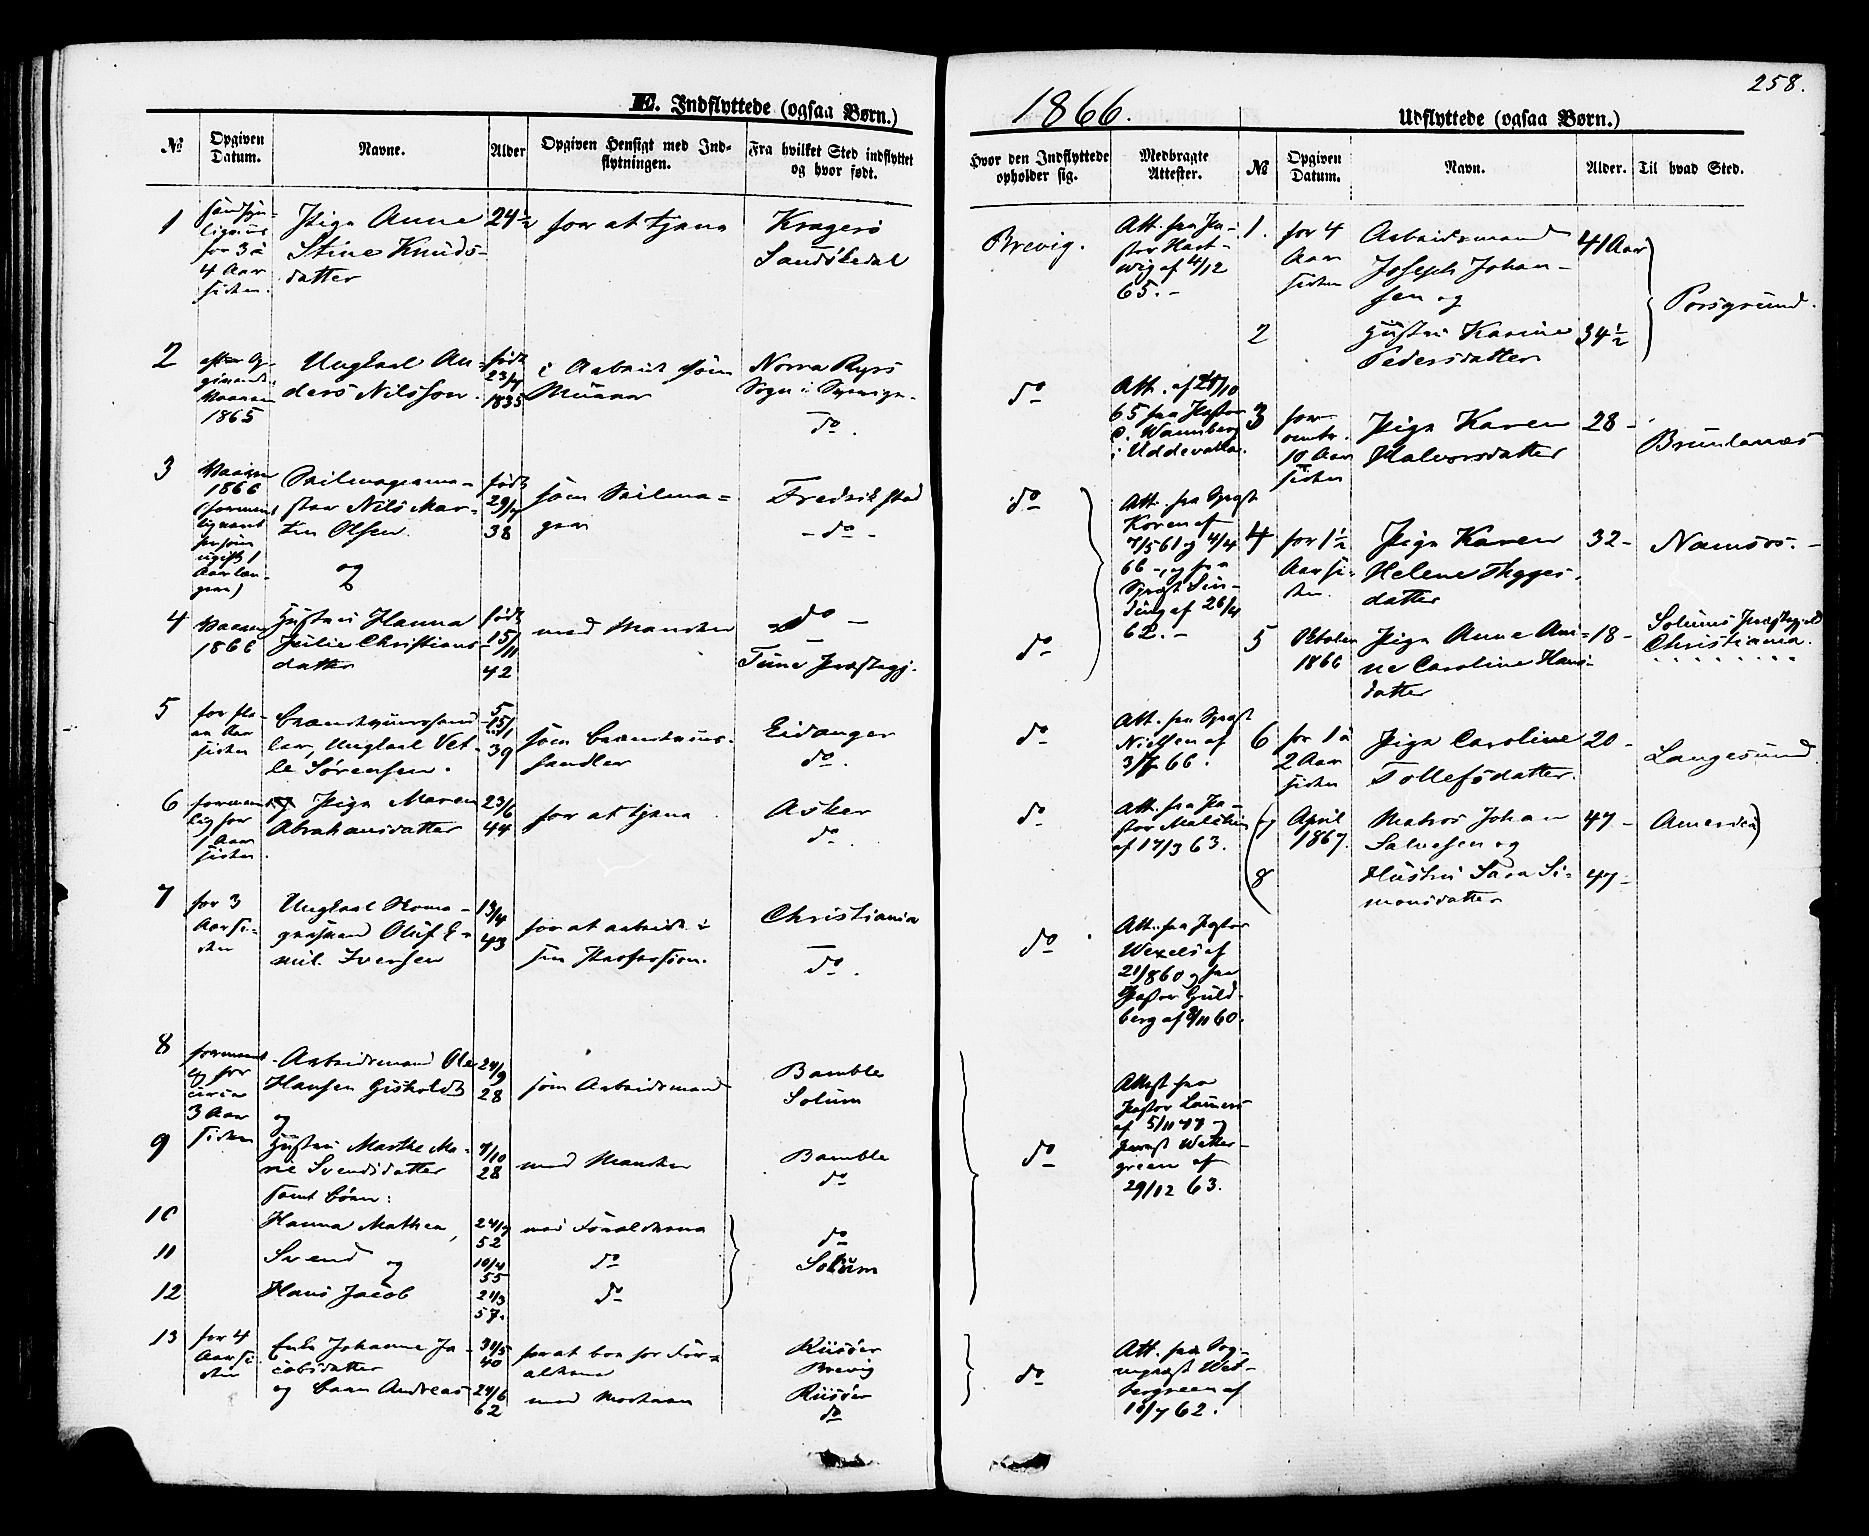 258.
E. Indflyttede (ogsaa Børn.)
1866.
Udflyttede (ogsaa Børn.)
№
Opgiven Datum.
Navne.
Alder
Opgiven Hensigt med Ind-
flytningen.
Fra hvilket Sted indflyttet
og hvor født.
Hvor den Indflyttede
opholder sig.
Medbragte
Attester.
№
Opgiven
Datum.
Navn.
Alder.
Til hvad Sted.
1
for 3 à
4 Aar
siden.
Pige Anne
Stine Knuds-
datter
24½
for at tjene
Kragerø
Sandøkedal
Brevig.
Att. fra Pa-
stor Hart-
wig af 4/12
65.-
2
1865
Ungkarl An-
ders Nilsson.
født
23/7
1835
i Arbeide som
Murer
Norra Ryrs
Sogn i Sverige.
do.
do
Att. af 28/10
65 fra Pastor
C. Wannberg
i Uddevalla.
3
Vaaren
1866
Seilmagerme-
ster Nils Mar-
tin Olsen.
og
født
29/7
38
som Seilma-
ger
Fredrikstad
- do -
do
Att. fra Sprgst
Koren af
7/5 61 og 4/4
66 -, og fra
Sprgst Sin-
ding af 26/4
62.-
4
Vaaren
1866
Hustru Hanna
Julie Christians-
datter
født
15/11
42
med Manden
do -
Tune Præstegj.
do
5
siden
Brændeviinshand-
ler, Ungkarl Vet-
le Sørensen.
39
som Brændeviins-
handler
Eidanger
do.
do
Att. fra Sprgst
Nielsen af
3/7 66.
6
formentl-
lig for
1 Aar
siden.
Pige Maren
Abrahamsdatter
23/6
44
for at tjene
Asker
do.
do
Att. fra Pa-
stor
af 17/3 63.
7
for 3
Aar si-
den
Ungkarl
Oluf E-
mil Iversen
13/4
43
for at arbeide i
sin Profession.
Christiania
do.
do
Att. fra Pastor
Wexels af
21/8 60 og fra
Pastor Guld-
berg af 8/11 60.
8
forment-
lig for
circa
3 Aar
siden
Arbeidsmand Ole
Hansen Gisholdt
og
24/9
28
som Arbeidsmand
Bamble
Solum
Attest fra
Pastor Lamers
af 5/11 47 og
Prost Wetter-
green af
29/12 63.
9
Hustru Marthe Ma-
rie Svendsdatter
samt Børn:
7/10
28
med Manden
Bamble
do
do
10
Hanna Mathea,
24/7
52
med Forældrene
do
11
Svend og
10/4
55
do
Solum
12
Hans Jacob
21/3
57.
do
13
for 4
Aar si-
den
Enke Johanne Ja-
cobsdatter
og Barn Andreas
31/5
40
24/6
62
for at boe hos For-
ældrene
med Moderen
Riisøer
Brevig
Riisøer
do
do
Att. fra Sog-
neprest Wet-
tergreen af
10/7 62.
1.
for 4
Aar
siden
Arbeidsmand
Joseph Johan-
sen og
41 Aar
Porsgrund.
2
Hustru Karine
Pedersdatter
34½
3
for
omtr.
10 Aar
siden
Pige Karen
Halvorsdatter
28 -
Brunlanæs
4
for 1½
Aar si-
den.
Pige Karen
Helene Thyges-
datter
32 -
Namsos. -
5
Oktober
1866
Pige Anne Ami-
ne Caroline Hans-
datter
18 -
Solums Præstegjeld
Christiania.
6
for 1 à
2 Aar
siden
Pige Caroline
Tollefsdatter.
20 -
Langesund.
7
April
1867.
Matros Johan
Salvesen og
47 -
Amerika)
8
Hustru Sara Si-
monsdatter
47 -